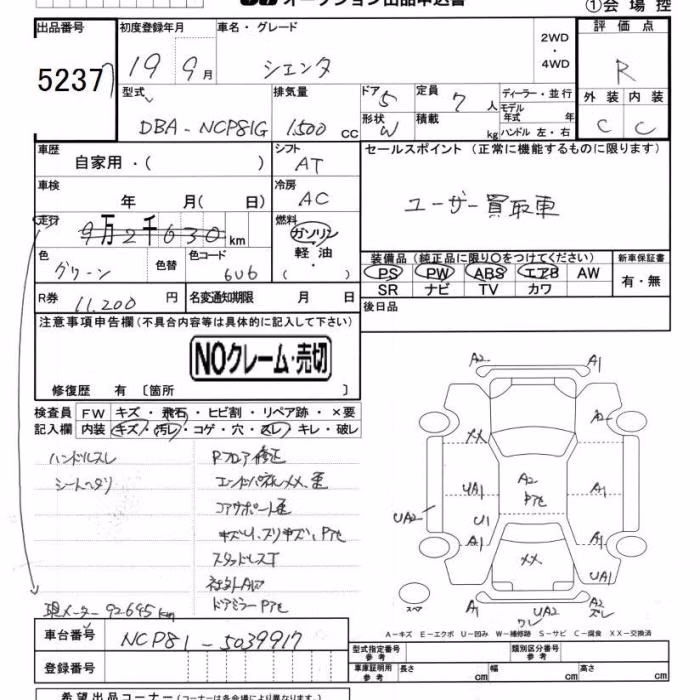 オークション出品申込書 ①会場控
出品番号 初度登録年月 車名・グレード 2WD・4WD 評価点
5237 19 9月 シエンタ R
型式 排気量 ドア 5 定員 7人 ディーラー・並行 外装 内装
DBA-NCP81G 1500 CC 形状 W 積載 kg モデル年式 年 ハンドル 左・右 C C
車歴 シフト セールスポイント (正常に機能するものに限ります)
自家用・( ) AT
車検 年 月( 日) 冷房 AC ユーザー買取車
走行 9万2千630km 燃料 ガソリン・軽油・( )
色 グリーン 色替 色コード 6U6
装備品 (純正品に限り○をつけてください) 新車保証書
PS PW ABS エアB AW 有・無
SR ナビ TV カワ
R券 11,200円 名変通知期限 月 日
後日品
注意事項申告欄 (不具合内容等は具体的に記入して下さい)
NOクレーム・売切
修復歴 有 〔箇所 〕
検査員 FW キズ・飛石・ヒビ割・リペア跡・×要
記入欄 内装 キズ・汚レ・コゲ・穴・スレ・キレ・破レ
ハンドルスレ
シートヘタリ
Rフロア修正
エンドパネルXX、歪
コアサポート歪
スタッドレスT
社外AW
ドアミラーPアセ
現メーター 92645km
A2 A1
XX A2
UA1 A2 A1
UA2 U1 A1
A1 XX UA1
スペア A1 UA2 ワレ A2 ズレ
A−キズ E−エクボ U−凹み W−補修跡 S−サビ C−腐食 XX−交換済
車台番号 NCP81-5039917
型式指定番号 参考 類別区分番号 参考
登録番号
車庫証明用 参考 長さ cm 幅 cm 高さ cm
希望出品コーナー (コーナーは各会場により異なります)